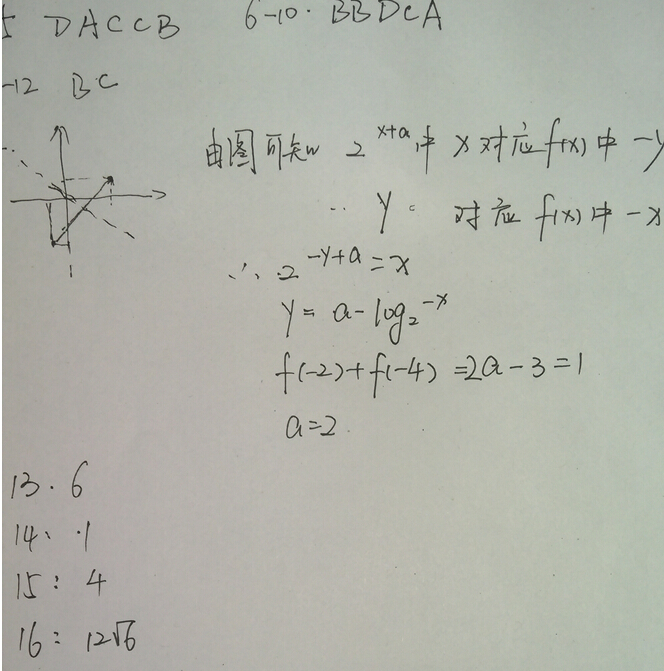 5 DACCB 6-10. BBDCA
-12 BC
由图可知 2^{x+a}中 x对应f(x)中 -y
∵ y 对应 f(x)中 -x
∴ 2^{-y+a}=x
y= a-log₂^{-x}
f(-2)+f(-4) =2a-3=1
a=2
13. 6
14、1
15: 4
16: 12√6